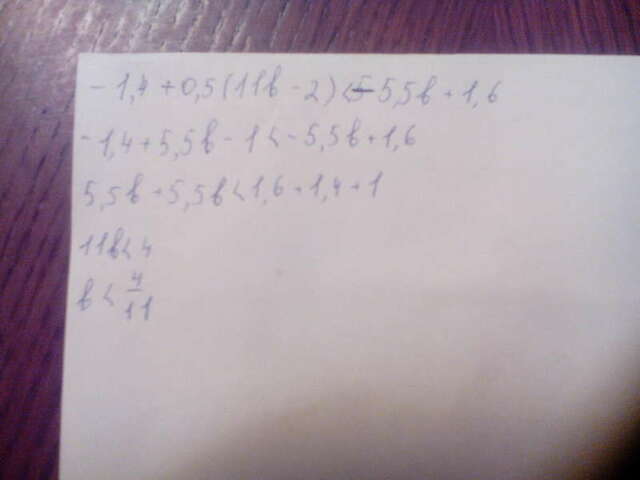 - 1,4 + 0,5(11в - 2) < - 5,5в + 1,6
- 1,4 + 5,5в - 1 < - 5,5в + 1,6
5,5в + 5,5в < 1,6 + 1,4 + 1
11в < 4
в < 4/11